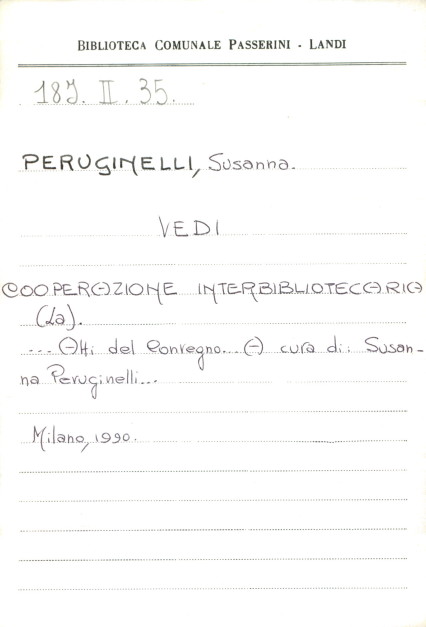 BIBLIOTECA COMUNALE PASSERINI - LANDI
189. II. 35.
PERUGINELLI, Susanna.
VEDI
COOPERAZIONE INTERBIBLIOTECARIA
(La).
... Atti del Convegno... A cura di: Susan-
na Peruginelli...
Milano, 1990.